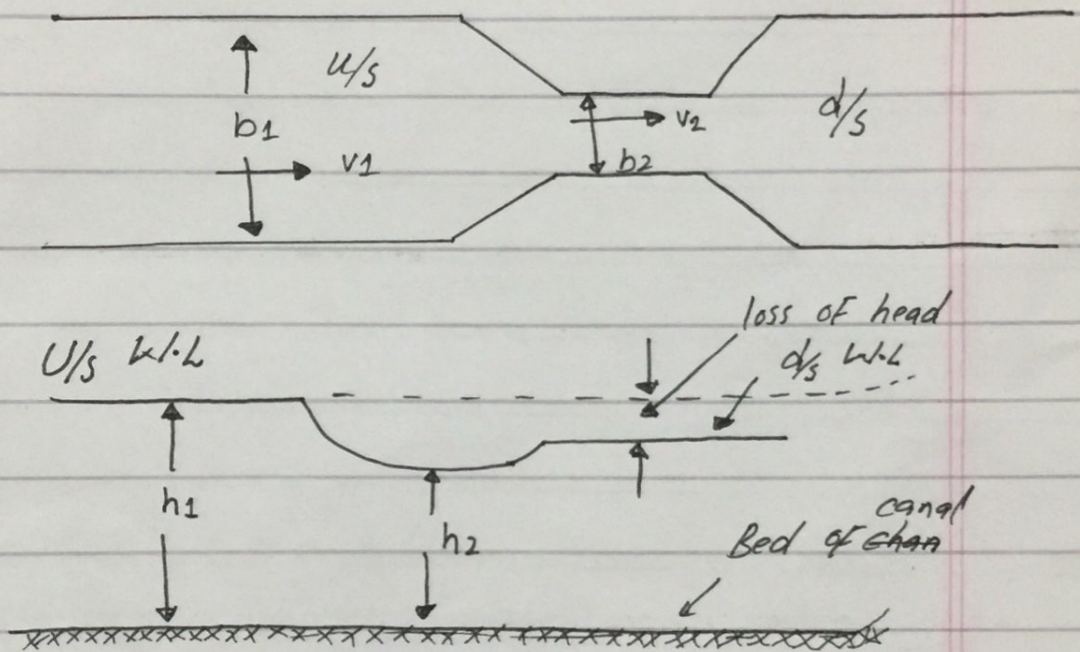 u/s
b1
v1
v2
b2
d/s
loss of head
U/s W.L
d/s W.L
h1
h2
canal
Bed of chan